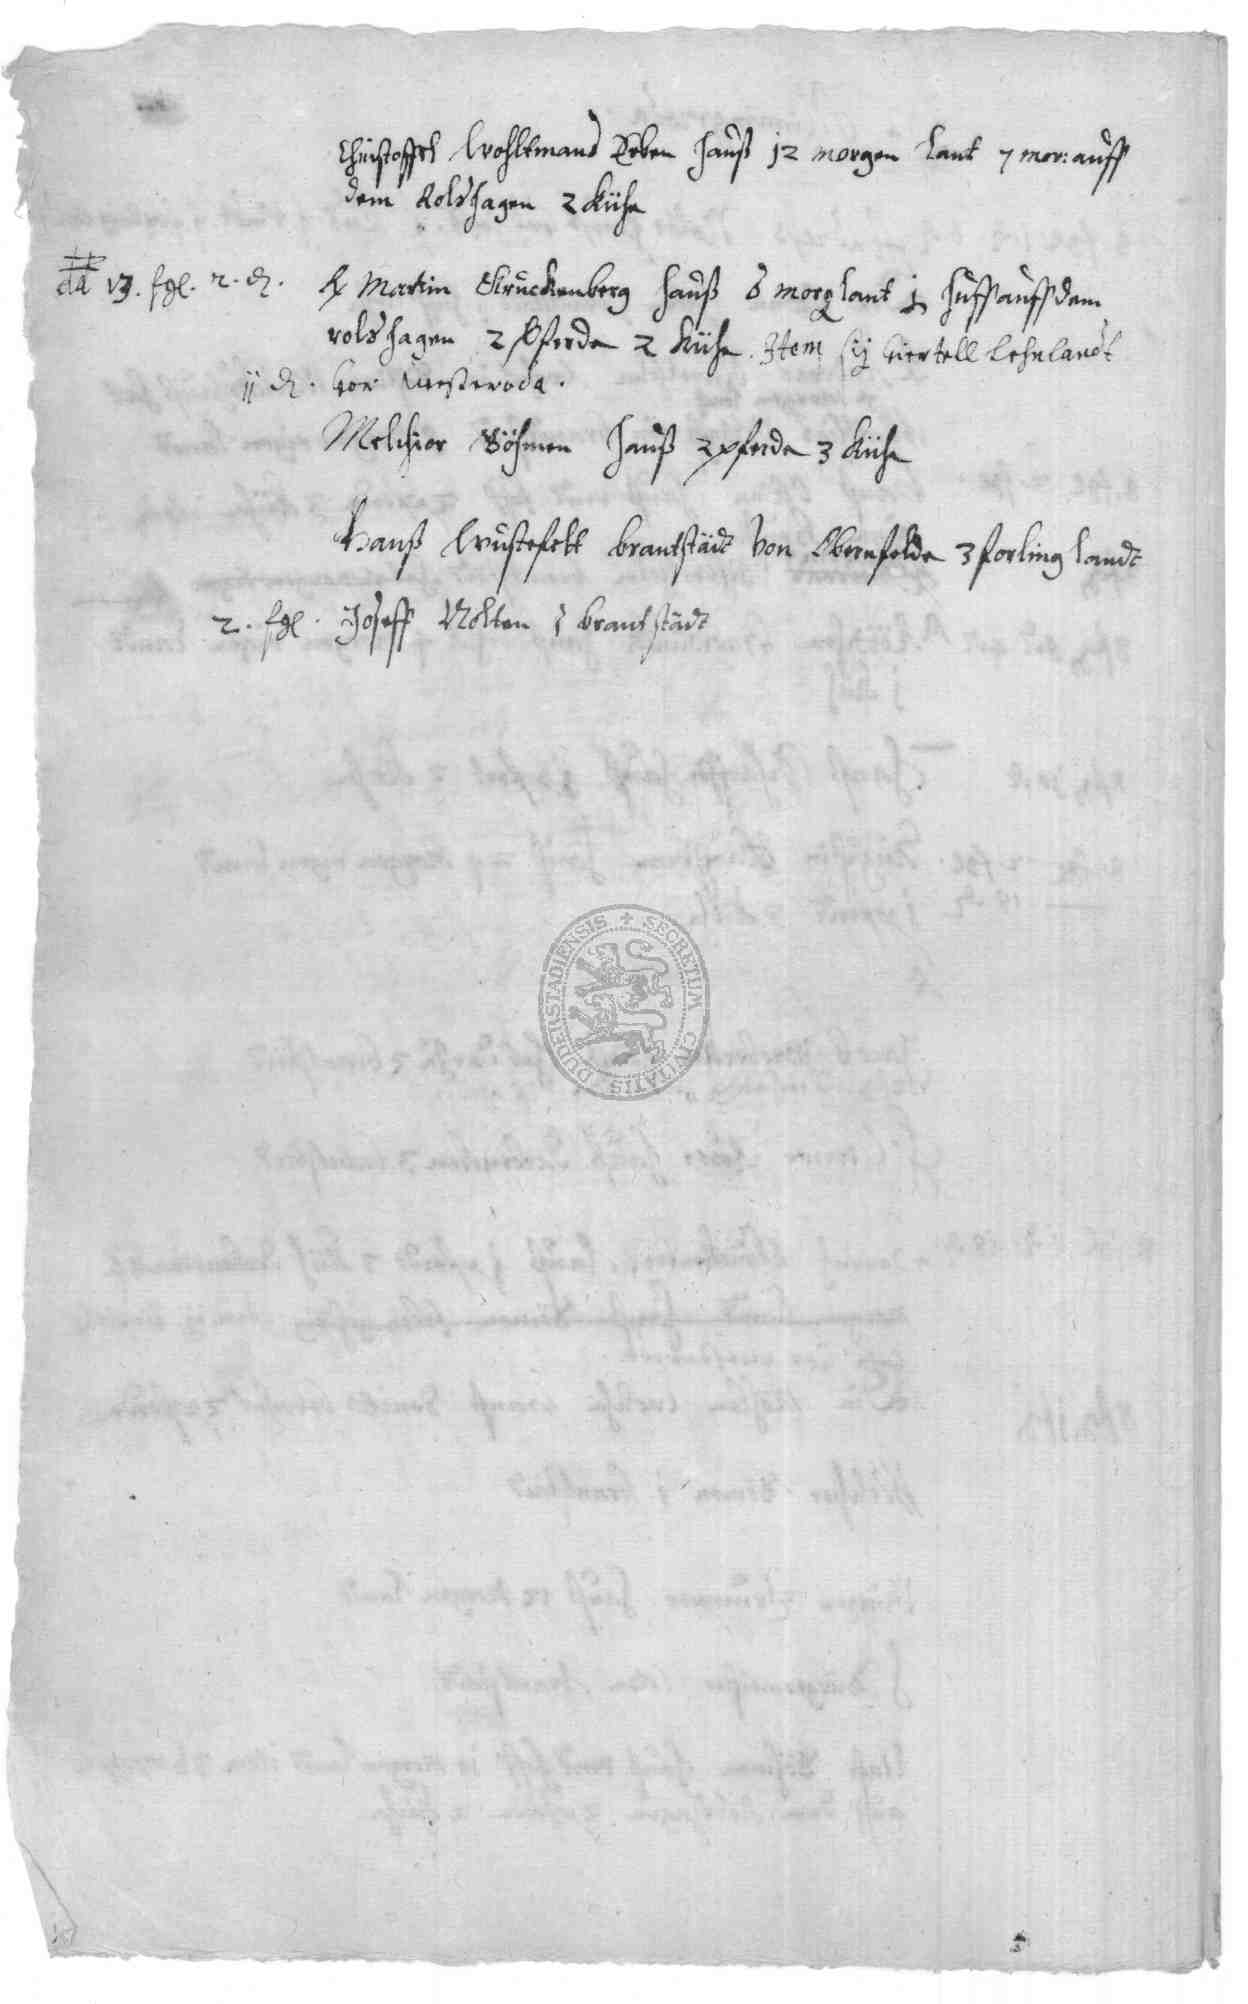 Christoffel Wohltmans Erben Hauß 12 morgen Lant 7 mor: auff
dem Rolshagen 2 Kühe
dd 13. fgl. 2. d. Martin Kruckenberg Hauß 6 morg lant j Huff auff dem
rolshagen 2 Pferde 2 Kühe. Item iij viertell Lehnlandt
ij d. vor Westeroda.
Melchior Böhmen Hauß 2 pferde 3 Kühe
Hanß Wustefelt brantstädt von Obernfelde 3 forling landt
2. fgl. Joseff Nolten j brantstädt
SECRETUM CIVITATIS DUDERSTADIENSIS